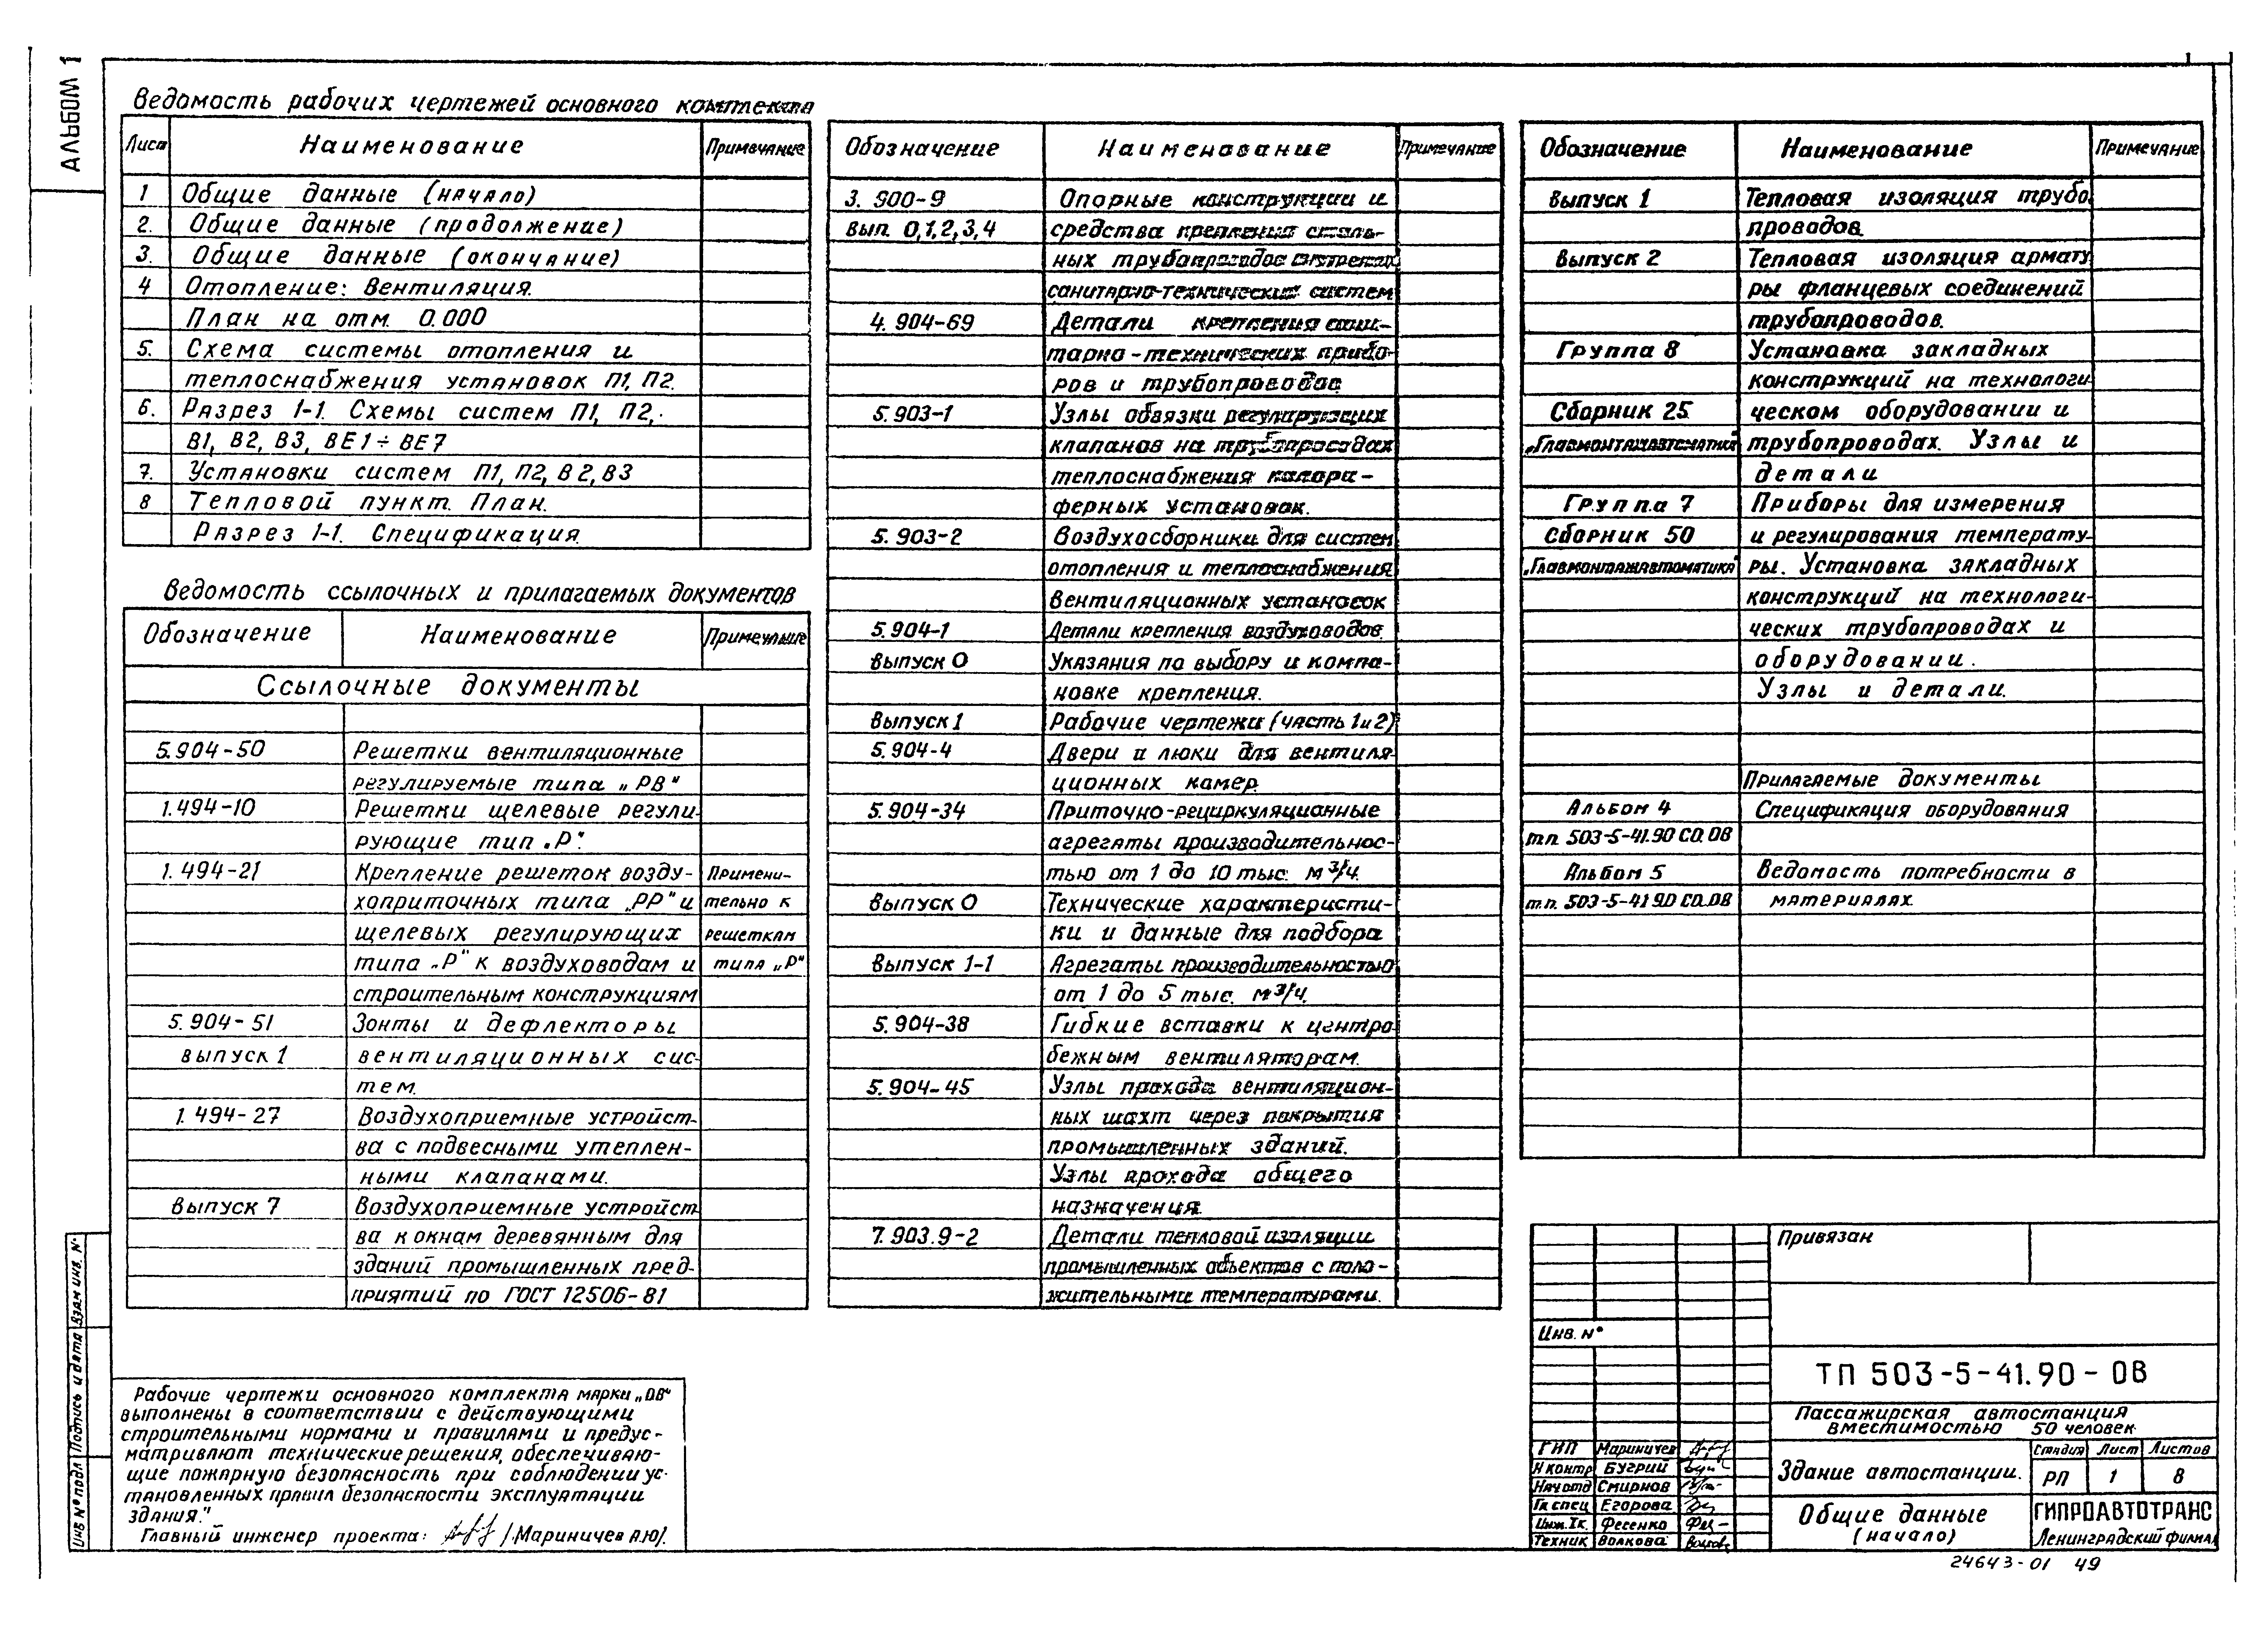 Альбом 1
Ведомость рабочих чертежей основного комплекта
Лист Наименование Примечание
1 Общие данные (начало)
2. Общие данные (продолжение)
3. Общие данные (окончание)
4 Отопление: Вентиляция.
План на отм. 0.000
5. Схема системы отопления и
теплоснабжения установок П1, П2.
6. Разрез 1-1. Схемы систем П1, П2,
В1, В2, В3, ВЕ1÷ВЕ7
7. Установки систем П1, П2, В2, В3
8 Тепловой пункт. План.
Разрез 1-1. Спецификация.
Ведомость ссылочных и прилагаемых документов
Обозначение Наименование Примечание
Ссылочные документы
5.904-50 Решетки вентиляционные
регулируемые типа „РВ"
1.494-10 Решетки щелевые регули-
рующие тип „Р".
1.494-21 Крепление решеток возду- Примени-
хоприточных типа „РР" и тельно к
щелевых регулирующих решеткам
типа „Р" к воздуховодам и типа „Р"
строительным конструкциям
5.904-51 Зонты и дефлекторы
выпуск 1 вентиляционных сис-
тем.
1.494-27 Воздухоприемные устройст-
ва с подвесными утеплен-
ными клапанами.
Выпуск 7 Воздухоприемные устройст
ва к окнам деревянным для
зданий промышленных пред-
приятий по ГОСТ 12506-81
Обозначение Наименование Примечание
3.900-9 Опорные конструкции и
вып. 0,1,2,3,4 средства крепления сталь-
ных трубопроводов внутренних
санитарно-технических систем
4.904-69 Детали крепления сани-
тарно-технических прибо-
ров и трубопроводов
5.903-1 Узлы обвязки регулирующих
клапанов на трубопроводах
теплоснабжения калори-
ферных установок.
5.903-2 Воздухосборники для систем
отопления и теплоснабжения
вентиляционных установок
5.904-1 Детали крепления воздуховодов
выпуск 0 Указания по выбору и компа-
новке крепления.
Выпуск 1 Рабочие чертежи (часть 1 и 2)
5.904-4 Двери и люки для вентиля-
ционных камер
5.904-34 Приточно-рециркуляционные
агрегаты производительнос-
тью от 1 до 10 тыс. м³/ч.
выпуск 0 Технические характеристи-
ки и данные для подбора
Выпуск 1-1 Агрегаты производительностью
от 1 до 5 тыс. м³/ч.
5.904-38 Гибкие вставки к центро
бежным вентиляторам.
5.904-45 Узлы прохода вентиляцион-
ных шахт через покрытия
промышленных зданий.
Узлы прохода общего
назначения
7.903.9-2 Детали тепловой изоляции
промышленных объектов с поло-
жительными температурами.
Обозначение Наименование Примечание
Выпуск 1 Тепловая изоляция трубо
проводов
Выпуск 2 Тепловая изоляция армату
ры фланцевых соединений
трубопроводов.
Группа 8 Установка закладных
конструкций на технологи-
Сборник 25 ческом оборудовании и
„Главмонтажавтоматика" трубопроводах. Узлы и
детали
Группа 7 Приборы для измерения
Сборник 50 и регулирования температу-
„Главмонтажавтоматика" ры. Установка закладных
конструкций на технологи-
ческих трубопроводах и
оборудовании.
Узлы и детали.
Прилагаемые документы
Альбом 4 Спецификация оборудования
т.п. 503-5-41.90 СО.ОВ
Альбом 5 Ведомость потребности в
т.п. 503-5-41.90 СО.ОВ материалах.
Рабочие чертежи основного комплекта марки „ОВ"
выполнены в соответствии с действующими
строительными нормами и правилами и предус-
матривают технические решения, обеспечиваю-
щие пожарную безопасность при соблюдении ус-
тановленных правил безопасности эксплуатации
здания."
Главный инженер проекта: /Мариничев А.Ю/.
Инв. № подл. Подпись и дата Взам. инв. №
Привязан
Инв. №
ТП 503-5-41.90-ОВ
Пассажирская автостанция
вместимостью 50 человек
ГИП Мариничев
Н контр Бугрий
Нач отд Смирнов
Гл спец Егорова
Инж. Iк. Фесенко
Техник Волкова
Здание автостанции.
Стадия Лист Листов
РП 1 8
Общие данные
(начало)
ГИПРОАВТОТРАНС
Ленинградский филиал
24643-01 49